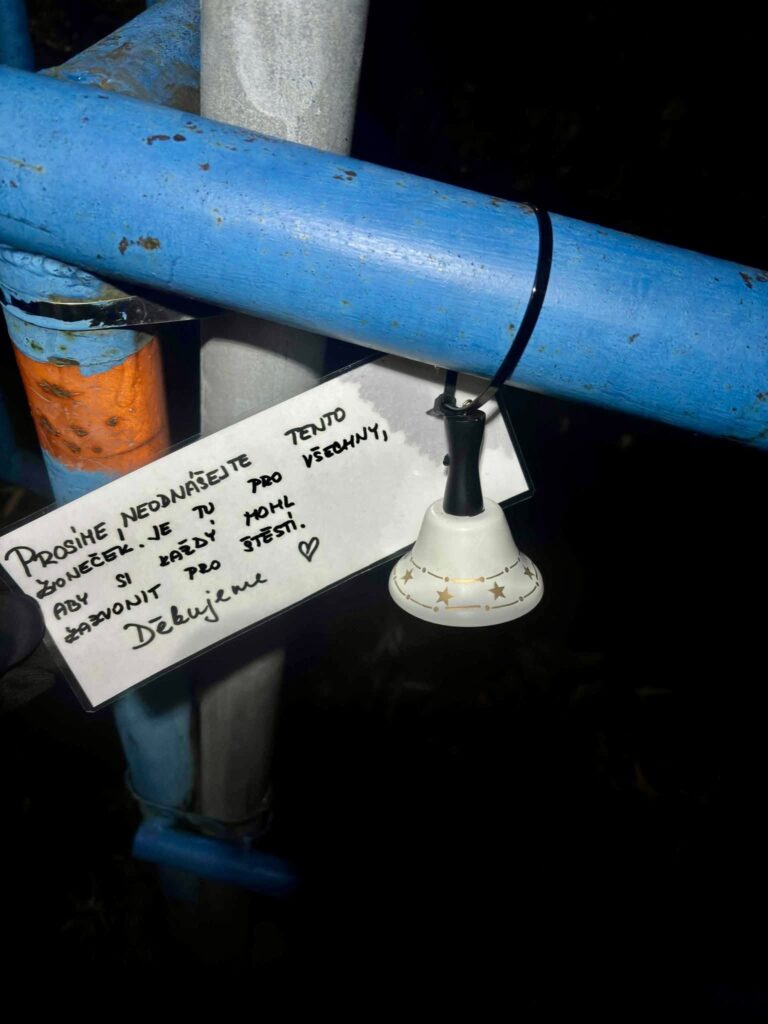 PROSÍME, NEODNÁŠEJTE TENTO
ZVONEČEK. JE TU PRO VŠECHNY,
ABY SI KAŽDÝ MOHL
ZAZVONIT PRO ŠTĚSTÍ.
Děkujeme ♡